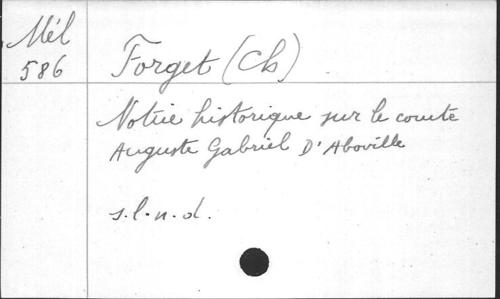 Mél
586
Forget (Ch)
Notice historique sur le comte
Auguste Gabriel D'Aboville
s.l.n.d.